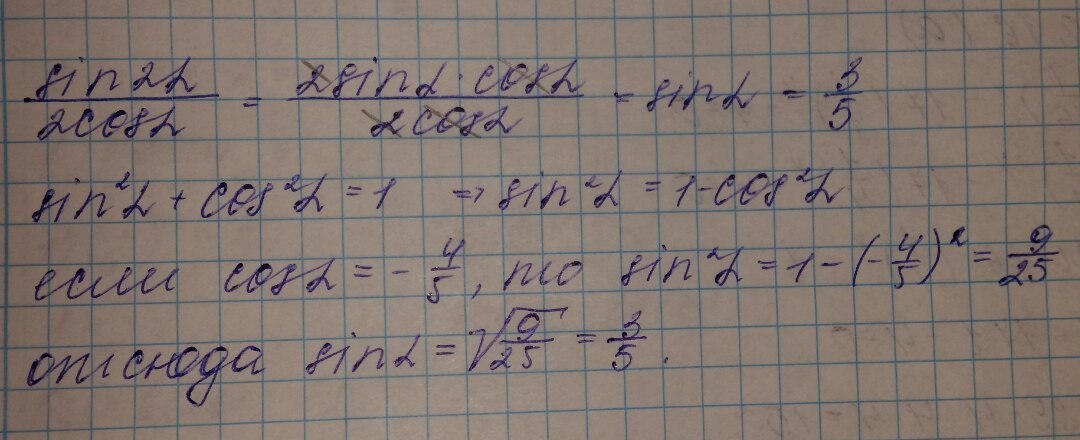 sin2α/2cosα = 2sinα · cosα/2cosα = sinα = 3/5
sin²α + cos²α = 1 => sin²α = 1 - cos²α
если cosα = - 4/5, то sin²α = 1 - (- 4/5)² = 9/25
отсюда sinα = √9/25 = 3/5.